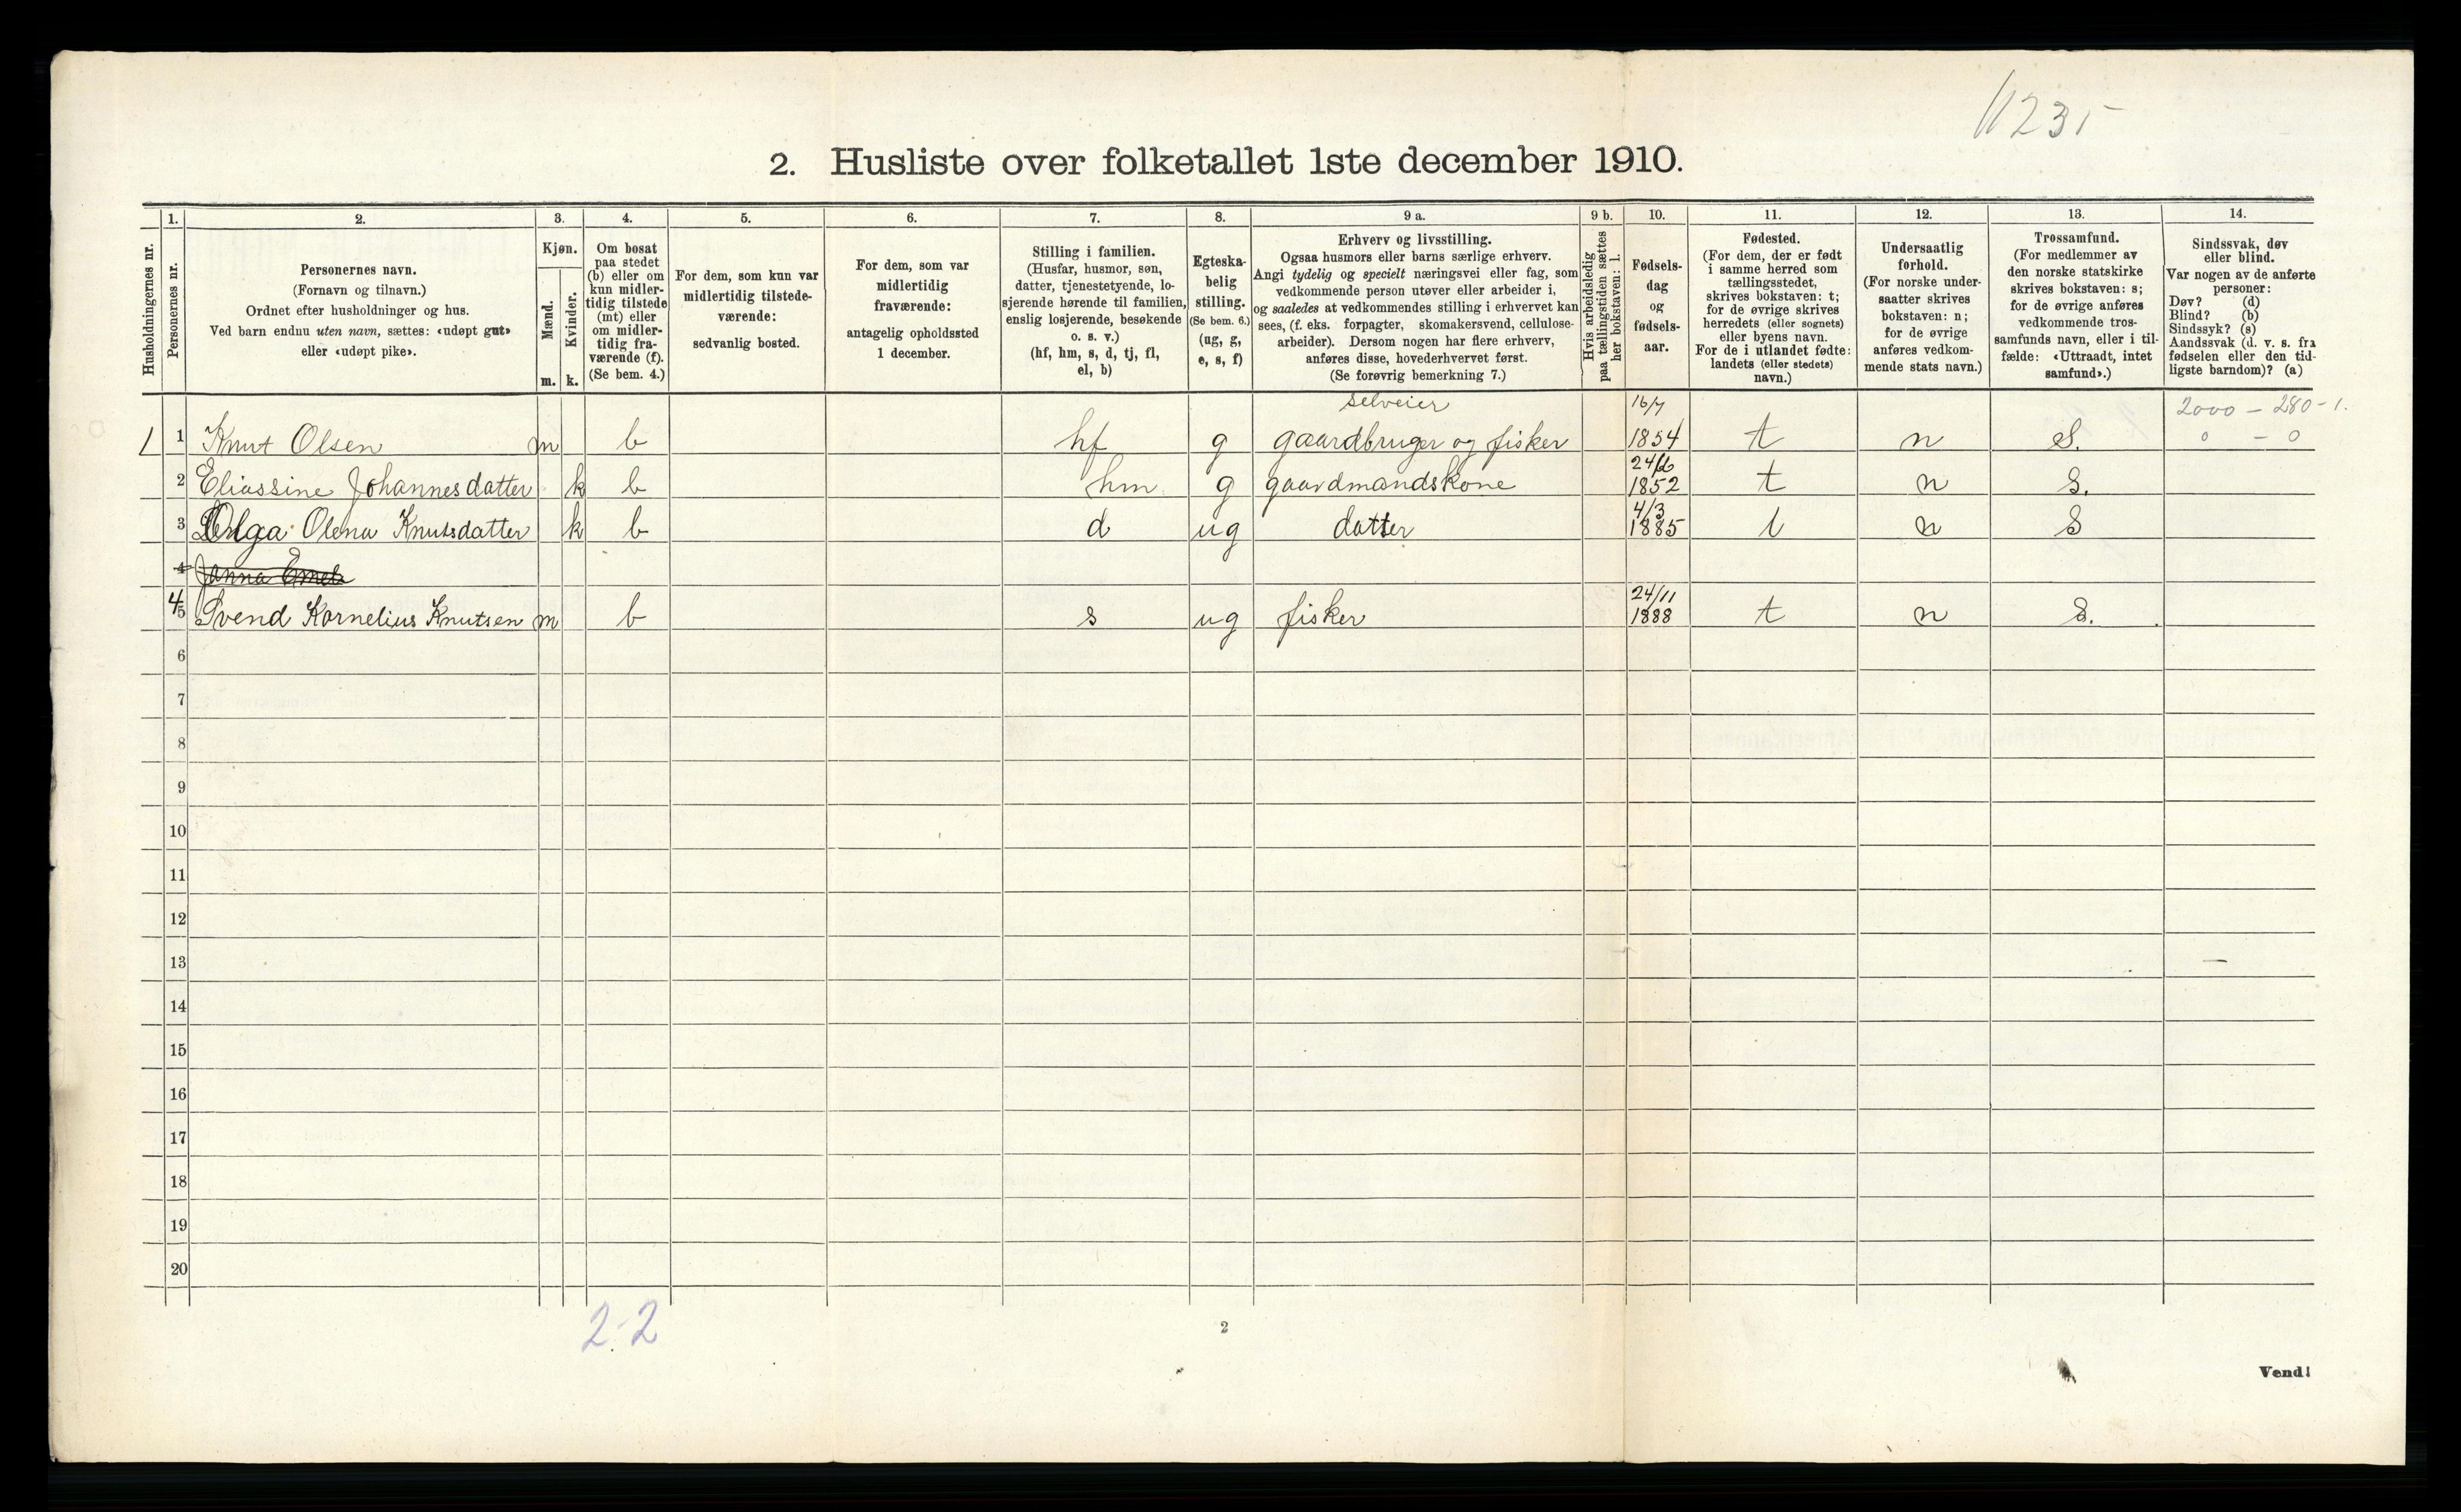 1235
2. Husliste over folketallet 1ste december 1910.
Husholdningernes nr.
1. Personernes nr.
2. Personernes navn.
(Fornavn og tilnavn.)
Ordnet efter husholdninger og hus.
Ved barn endnu uten navn, sættes: «udøpt gut»
eller «udøpt pike».
3. Kjøn.
Mænd. m.
Kvinder. k.
4. Om bosat
paa stedet
(b) eller om
kun midler-
tidig tilstede
(mt) eller
om midler-
tidig fra-
værende (f).
(Se bem. 4.)
5. For dem, som kun var
midlertidig tilstede-
værende:
sedvanlig bosted.
6. For dem, som var
midlertidig
fraværende:
antagelig opholdssted
1 december.
7. Stilling i familien.
(Husfar, husmor, søn,
datter, tjenestetyende, lo-
sjerende hørende til familien,
enslig losjerende, besøkende
o. s. v.)
(hf, hm, s, d, tj, fl,
el, b)
8. Egteska-
belig
stilling.
(Se bem. 6.)
(ug, g,
e, s, f)
9 a. Erhverv og livsstilling.
Ogsaa husmors eller barns særlige erhverv.
Angi tydelig og specielt næringsvei eller fag, som
vedkommende person utøver eller arbeider i,
og saaledes at vedkommendes stilling i erhvervet kan
sees, (f. eks. forpagter, skomakersvend, cellulose-
arbeider). Dersom nogen har flere erhverv,
anføres disse, hovederhvervet først.
(Se forøvrig bemerkning 7.)
9 b. Hvis arbeidsledig
paa tællingstiden sættes
her bokstaven: l.
10. Fødsels-
dag
og
fødsels-
aar.
11. Fødested.
(For dem, der er født
i samme herred som
tællingsstedet,
skrives bokstaven: t;
for de øvrige skrives
herredets (eller sognets)
eller byens navn.
For de i utlandet fødte:
landets (eller stedets)
navn.)
12. Undersaatlig
forhold.
(For norske under-
saatter skrives
bokstaven: n;
for de øvrige
anføres vedkom-
mende stats navn.)
13. Trossamfund.
(For medlemmer av
den norske statskirke
skrives bokstaven: s;
for de øvrige anføres
vedkommende tros-
samfunds navn, eller i til-
fælde: «Uttraadt, intet
samfund».)
14. Sindssvak, døv
eller blind.
Var nogen av de anførte
personer:
Døv? (d)
Blind? (b)
Sindssyk? (s)
Aandssvak (d. v. s. fra
fødselen eller den tid-
ligste barndom)? (a)
selveier 16/7 2000 - 280 - 1.
1 1 Knut Olsen m b hf g gaardbruger og fisker 1854 t n S. 0 - 0
2 Eliassine Johannesdatter k b hm g gaardmandskone 1852 t n S.
4/3
3 Olga Olena Knutsdatter k b d ug datter 1885 t n S
4 Janna
24/11
4 5 Svend Kornelius Knutsen m b s ug fisker 1888 t n S.
6
7
8
9
10
11
12
13
14
15
16
17
18
19
20
2-2
2
Vend!